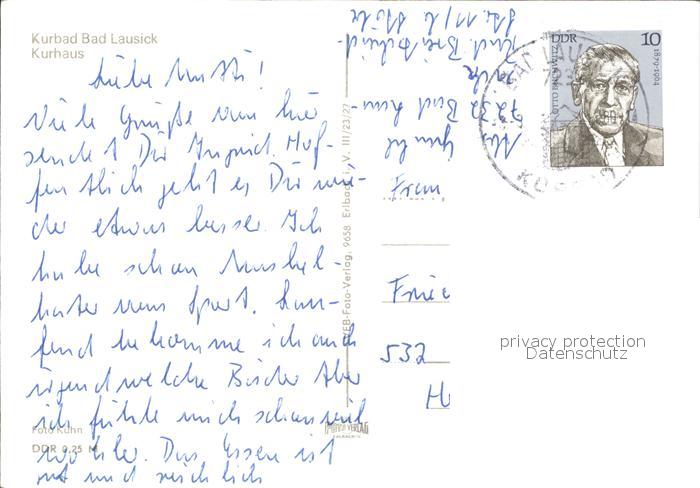 Kurbad Bad Lausick
Kurhaus
Liebe Mutti!
Viele Grüße von hier
sendet Dir Ingrid. Hof-
fentlich geht es Dir wie-
der etwas besser. Ich
habe schon Muskel-
kater vom Sport. Lau-
fend bekomme ich auch
irgendwelche Bäder. Aber
ich fühle mich schon viel
wohler. Das Essen ist
gut und reichlich
Foto Kuhn
DDR 0,25 M
VEB-Foto-Verlag, 9658 Erlbach i. V. III/23/27
7232 Bad Lau-
sick
Rud. Breitscheid-
Str. 11/
DDR
10
OTTO BUCHWITZ
1879-1964
BAD LAU
Frau
Frie
532
privacy protection
Datenschutz